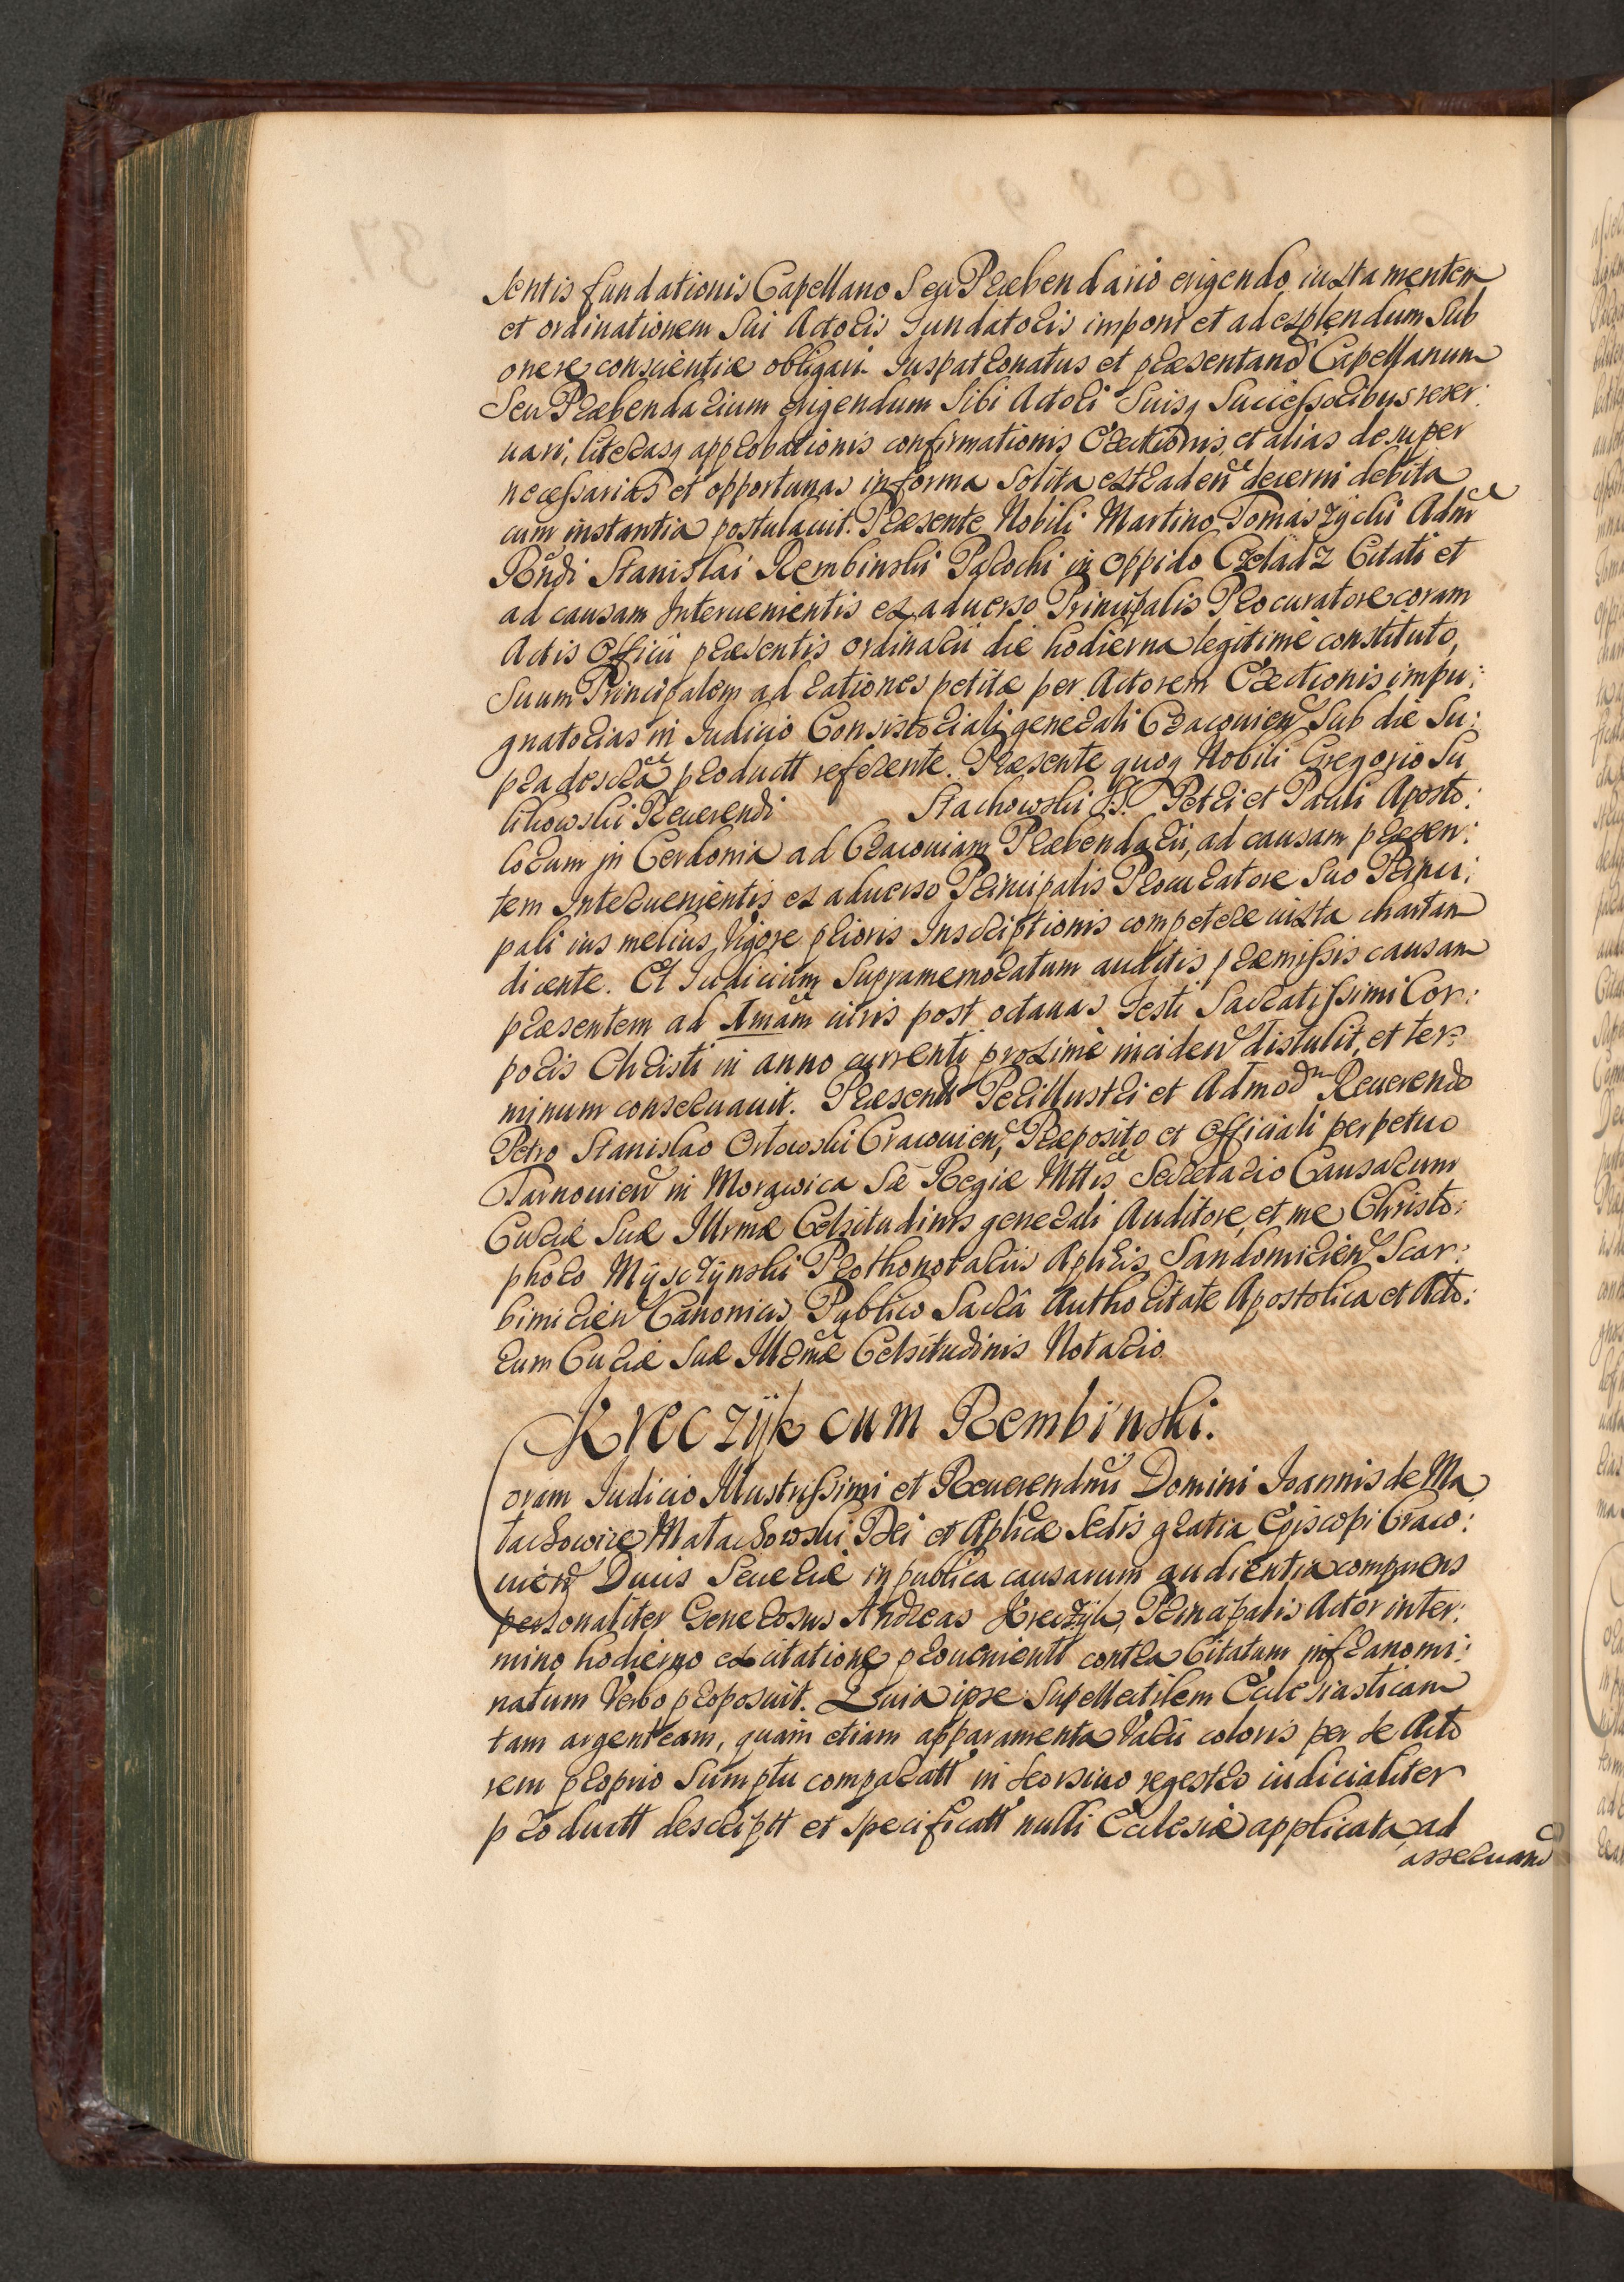 sentis fundationis Capellano Seu Præbendario erigendo iuxta mentem
et ordinationem Sui Actoris Fundatoris imponi et ad explendum Sub
onere conscientiæ obligari. Juspatronatus et præsentand Capellanum
Seu Præbendarium erigendum Sibi Actori Suisq Successoribus reser:
uari, literasq approbationis confirmationis Erectionis, et alias desuper
necessarias et opportunas in forma Solita extraden decerni debita
cum instantia postulauit. Præsente Nobili Martino Tomaszÿcki Adm
Rndi Stanislai Rembinski Parochi in Oppido Czeladz Citati et
ad causam Interuenientis ex aduerso Principalis Procuratore coram
Actis Officii præsentis ordinarii die hodierna legitime constituto,
Suum Principalem ad rationes petitæ per Actorem Erectionis impu:
gnatorias in Iudicio Consistoriali generali Cracouien Sub die Su:
pradescra productt referente. Præsente quoq Nobili Gregorio Su
likowski Reuerendi Stachowski SS. Petri et Pauli Aposto:
lorum in Cerdonia ad Cracouiam Præbendarii, ad causam præsen:
tem Interuenientis ex aduerso Principalis Procuratore Suo Princi:
pali ius melius, Vigore prioris Inscriptionis competere iuxta chartam
dicente. Et Iudicium Supramemoratum auditis præmissis causam
præsentem ad Amam iuris post octauas Festi Sacratissimi Cor:
poris Christi in anno currenti proxime inciden distulit, et ter:
minum conseruauit. Præsentt Perillustri et Admodm Reuerendo
Petro Stanislao Orłowski Cracouien, Præposito et Officiali perpetuo
Tarnouien in Morawica Sæ Regiæ Mttis Secretario Causarum
Curiæ Suæ Illrmæ Celsitudinis generali Auditore, et me Christo:
phoro Mÿsczÿnski Prothonotariis Aplicis Sandomirien Scar:
bimirien Canonicis, Publico Sacra Authoritate Apostolica et Acto:
rum Curiæ Suæ Illrmæ Celsitudinis Notario.
Kreczÿk cum Rembinski.
Coram Iudicio Illustrissimi et Reuerendmi Domini Ioannis de Ma
łachowice Małachowski Dei et Aplicæ Sedis gratia Episcopi Craco:
uien Ducis Seueriæ in publica causarum audientia comparens
personaliter Generosus Andreas Kreczÿk, Principalis Actor in ter:
mino hodierno ex citatione prouenientt contra Citatum infranomi:
natum Verbo proposuit. Quia ipse Supellectilem Ecclesiasticam
tam argenteam, quam etiam apparamenta Varii coloris per se Acto
rem proprio Sumptu comparatt in seorsiuo regestro iudicialiter
productt descriptt et specificatt nulli Ecclesiæ applicata, ad
asseruand